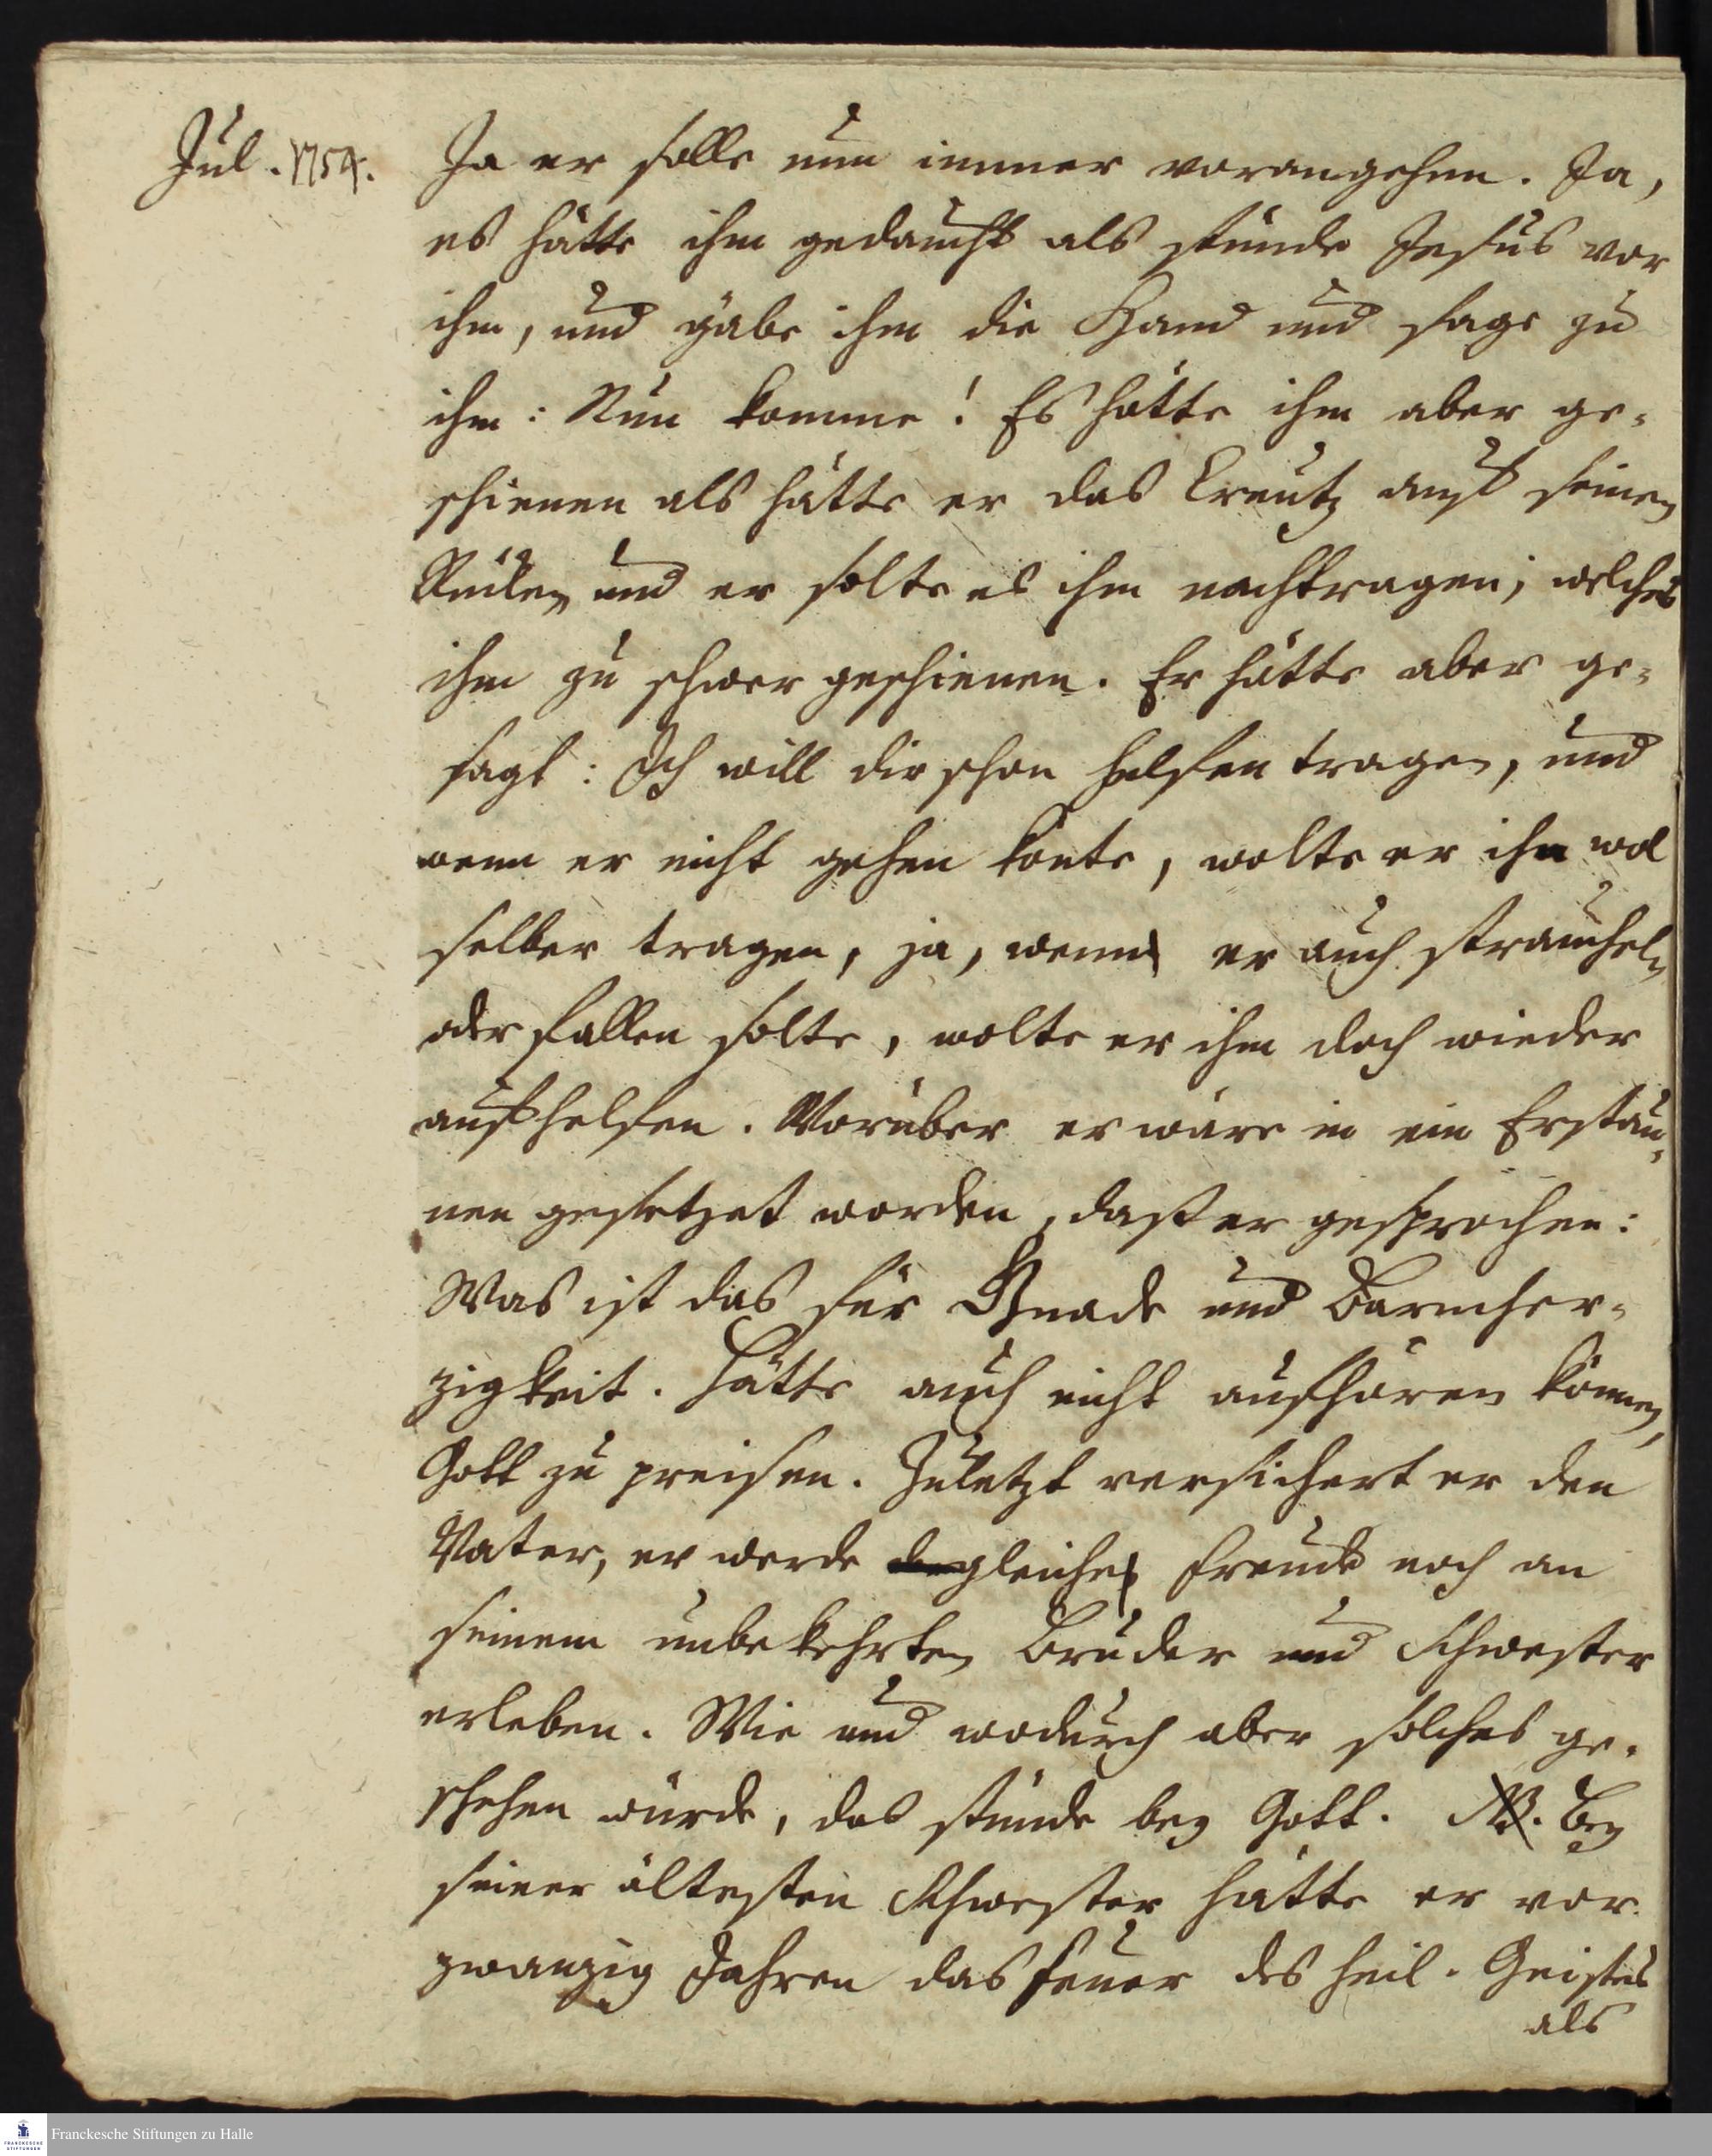 Jul. 1754.
Ja er solle nun immer vorangehen. Ja,
es hätte ihm gedaucht als stünde Jesus vor
ihm, und gäbe ihm die Hand und sage zu
ihm: Nun komme! Es hätte ihm aber ge-
schienen als hätte er das Creutz auf seinen
Rücken und er solte es ihm nachtragen; welches
ihm zu schwer geschienen. Er hätte aber ge-
sagt: Ich will dir schon helfen tragen, und
wenn er nicht gehen könte, wolte er ihn wol
selber tragen, ja, wenn er auch straucheln
oder fallen solte, wolte er ihm doch wieder
aufhelfen. Worüber er wäre in ein Erstau-
nen gesetzet worden, daß er gesprochen:
Was ist das für Gnade und Barmher-
zigkeit. Hätte auch nicht aufhören können,
Gott zu preisen. Zuletzt versichert er den
Vater, er werde gleiche Freude noch an
seinem unbekehrten Bruder und Schwester
erleben. Wie und wodurch aber solches ge-
schehen würde, das stünde bey Gott. NB. Bey
seiner ältesten Schwester hätte er vor
zwanzig Jahren das Feuer des heil. Geistes
als
Franckesche Stiftungen zu Halle
FRANCKESCHE
STIFTUNGEN